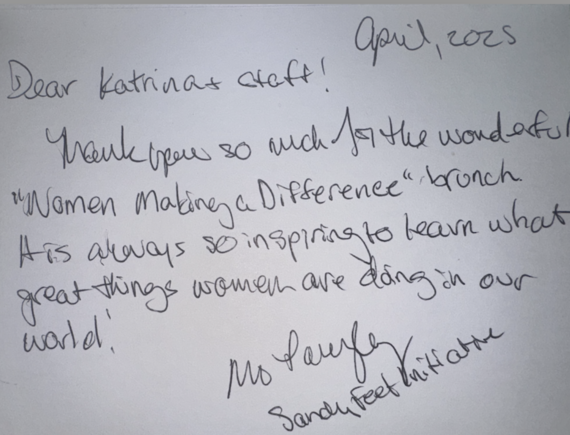 April, 2025
Dear Katrina + staff!
Thank you so much for the wonderful
"Women Making a Difference" brunch.
It is always so inspiring to learn what
great things women are doing in our
world!
Mo
Sandy Feet Initiative